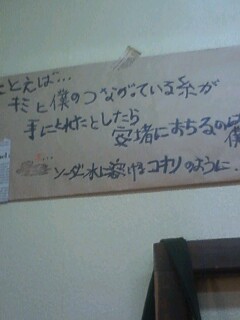 たとえば...
キミと僕のつながっている糸が
手にとれたとしたら
安堵におちるの
僕
ソーダ水に溶けるコオリのように..